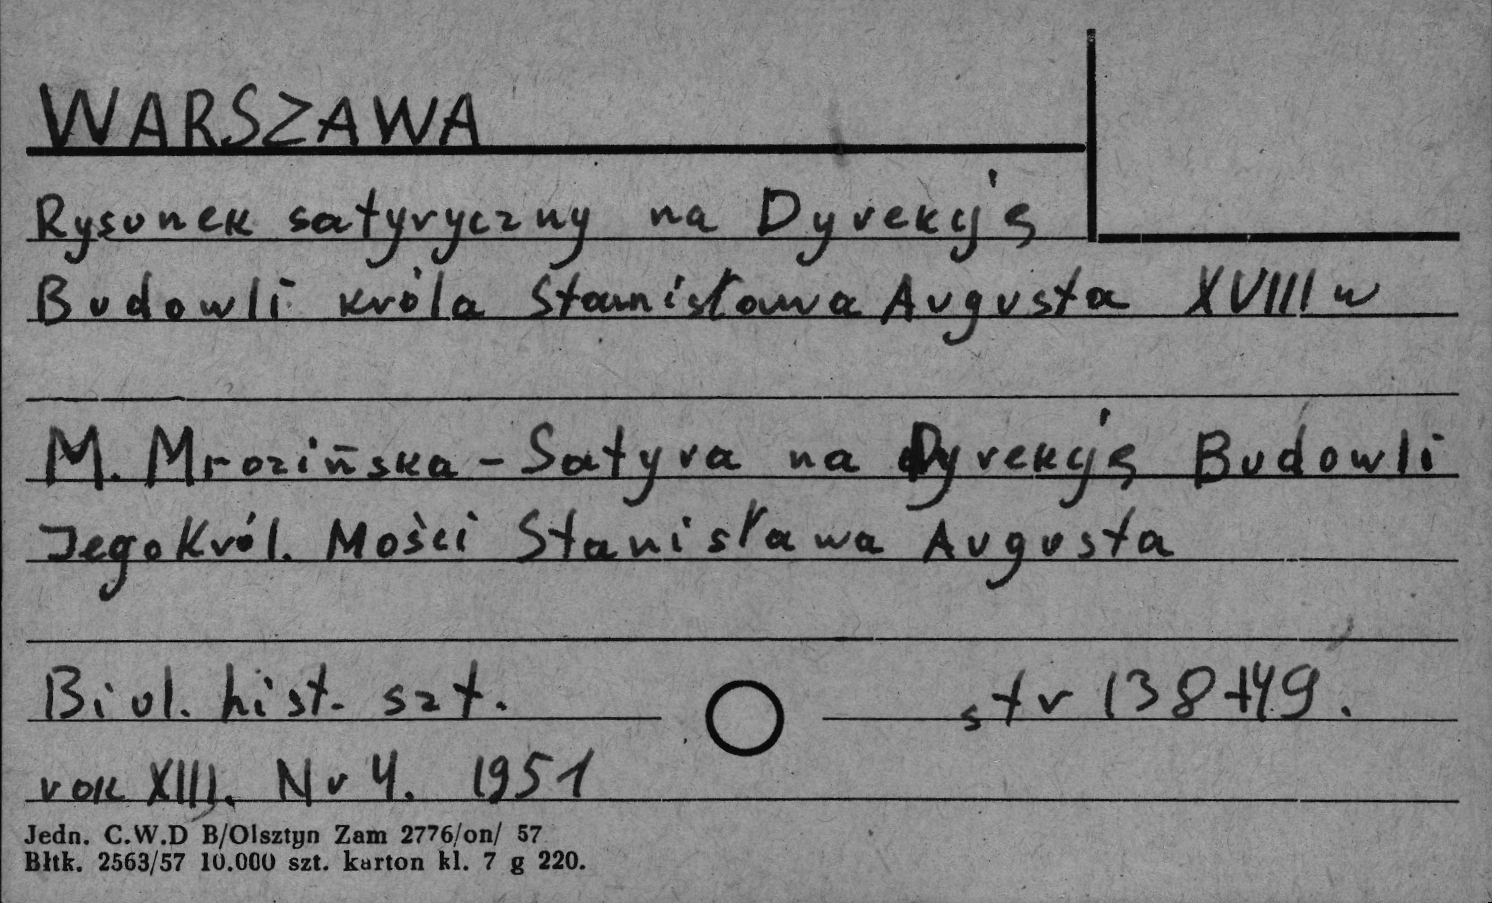 WARSZAWA
Rysunek satyryczny na Dyrekcję
Budowli króla Stanisława Augusta XVIII w
M. Mrozińska - Satyra na Dyrekcję Budowli
Jego Król. Mości Stanisława Augusta
Biul. hist. szt. str 138-149.
rok XIII. Nr 4. 1951
Jedn. C.W.D B/Olsztyn Zam 2776/on/ 57
Błtk. 2563/57 10.000 szt. karton kl. 7 g 220.